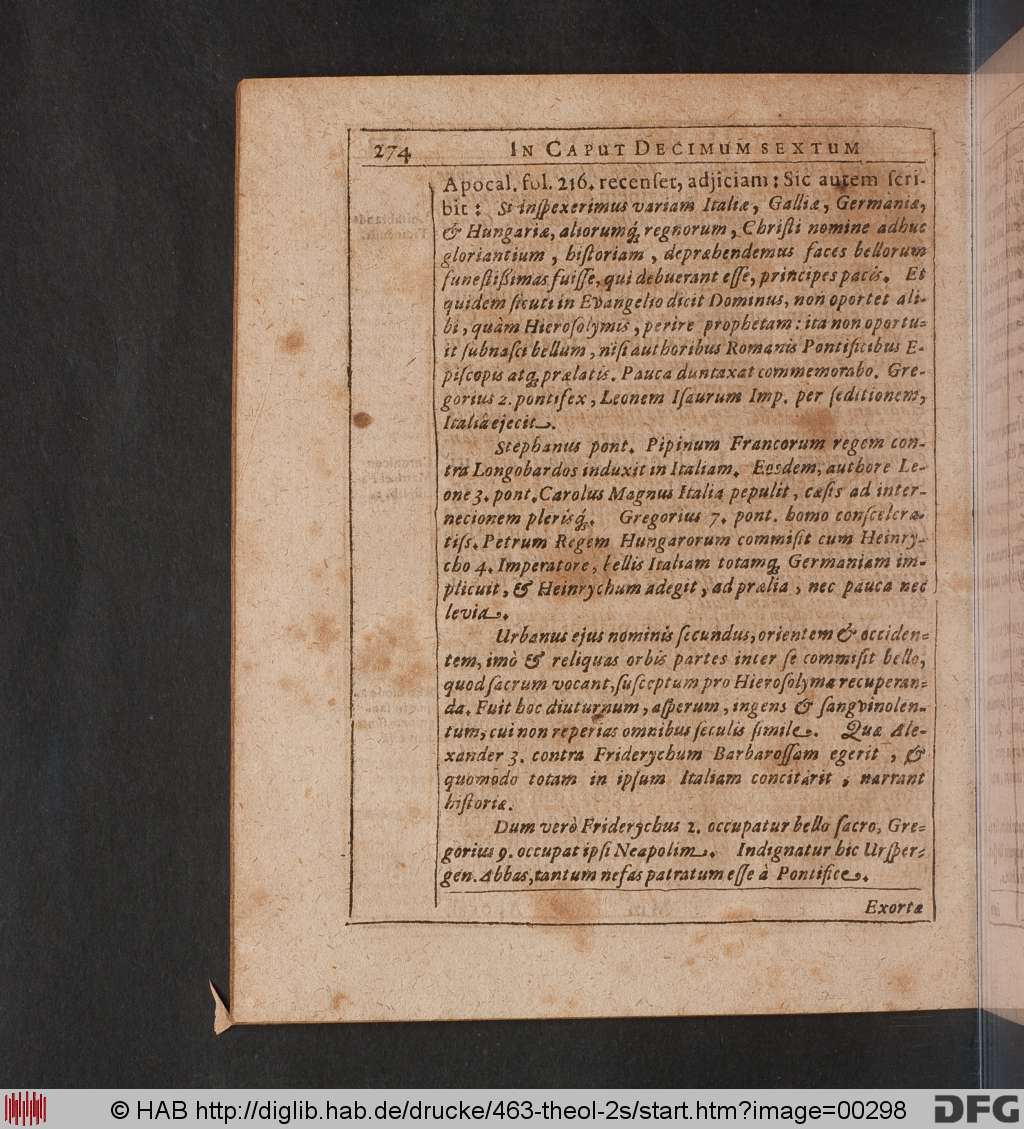 274 IN CAPUT DECIMUM SEXTUM
Apocal. fol. 216. recenset, adjiciam: Sic autem scri-
bit: Si inspexerimus variam Italiæ, Galliæ, Germaniæ,
& Hungariæ, aliorumq́; regnorum, Christi nomine adhuc
gloriantium, historiam, depræhendemus faces bellorum
funestißimas fuisse, qui debuerant esse, principes pacis. Et
quidem sicuti in Evangelio dicit Dominus, non oportet ali-
bi, quàm Hierosolymis, perire prophetam: ita non oportu-
it subnasci bellum, nisi authoribus Romanis Pontificibus E-
piscopis atq; prælatis. Pauca duntaxat commemorabo. Gre-
gorius 2. pontifex, Leonem Isaurum Imp. per seditionem,
Italiâ ejecit.
Stephanus pont. Pipinum Francorum regem con-
tra Longobardos induxit in Italiam. Eosdem, authore Le-
one 3. pont. Carolus Magnus Italia pepulit, cæsis ad inter-
necionem plerisq́;. Gregorius 7. pont. homo conscelera-
tiss. Petrum Regem Hungarorum commisit cum Heinry-
cho 4. Imperatore, bellis Italiam totamq; Germaniam im-
plicuit, & Heinrychum adegit, ad prælia, nec pauca nec
levia.
Urbanus ejus nominis secundus, orientem & occiden-
tem, imò & reliquas orbis partes inter se commisit bello,
quod sacrum vocant, susceptum pro Hierosolyma recuperan-
da. Fuit hoc diuturnum, asperum, ingens & sangvinolen-
tum, cui non reperias omnibus seculis simile. Quæ Ale-
xander 3. contra Friderychum Barbarossam egerit, &
quomodo totam in ipsum Italiam concitârit, narrant
historiæ.
Dum verò Friderychus 2. occupatur bello sacro, Gre-
gorius 9. occupat ipsi Neapolim. Indignatur hic Ursper-
gen. Abbas, tantum nefas patratum esse à Pontifice.
Exortæ
© HAB http://diglib.hab.de/drucke/463-theol-2s/start.htm?image=00298 DFG